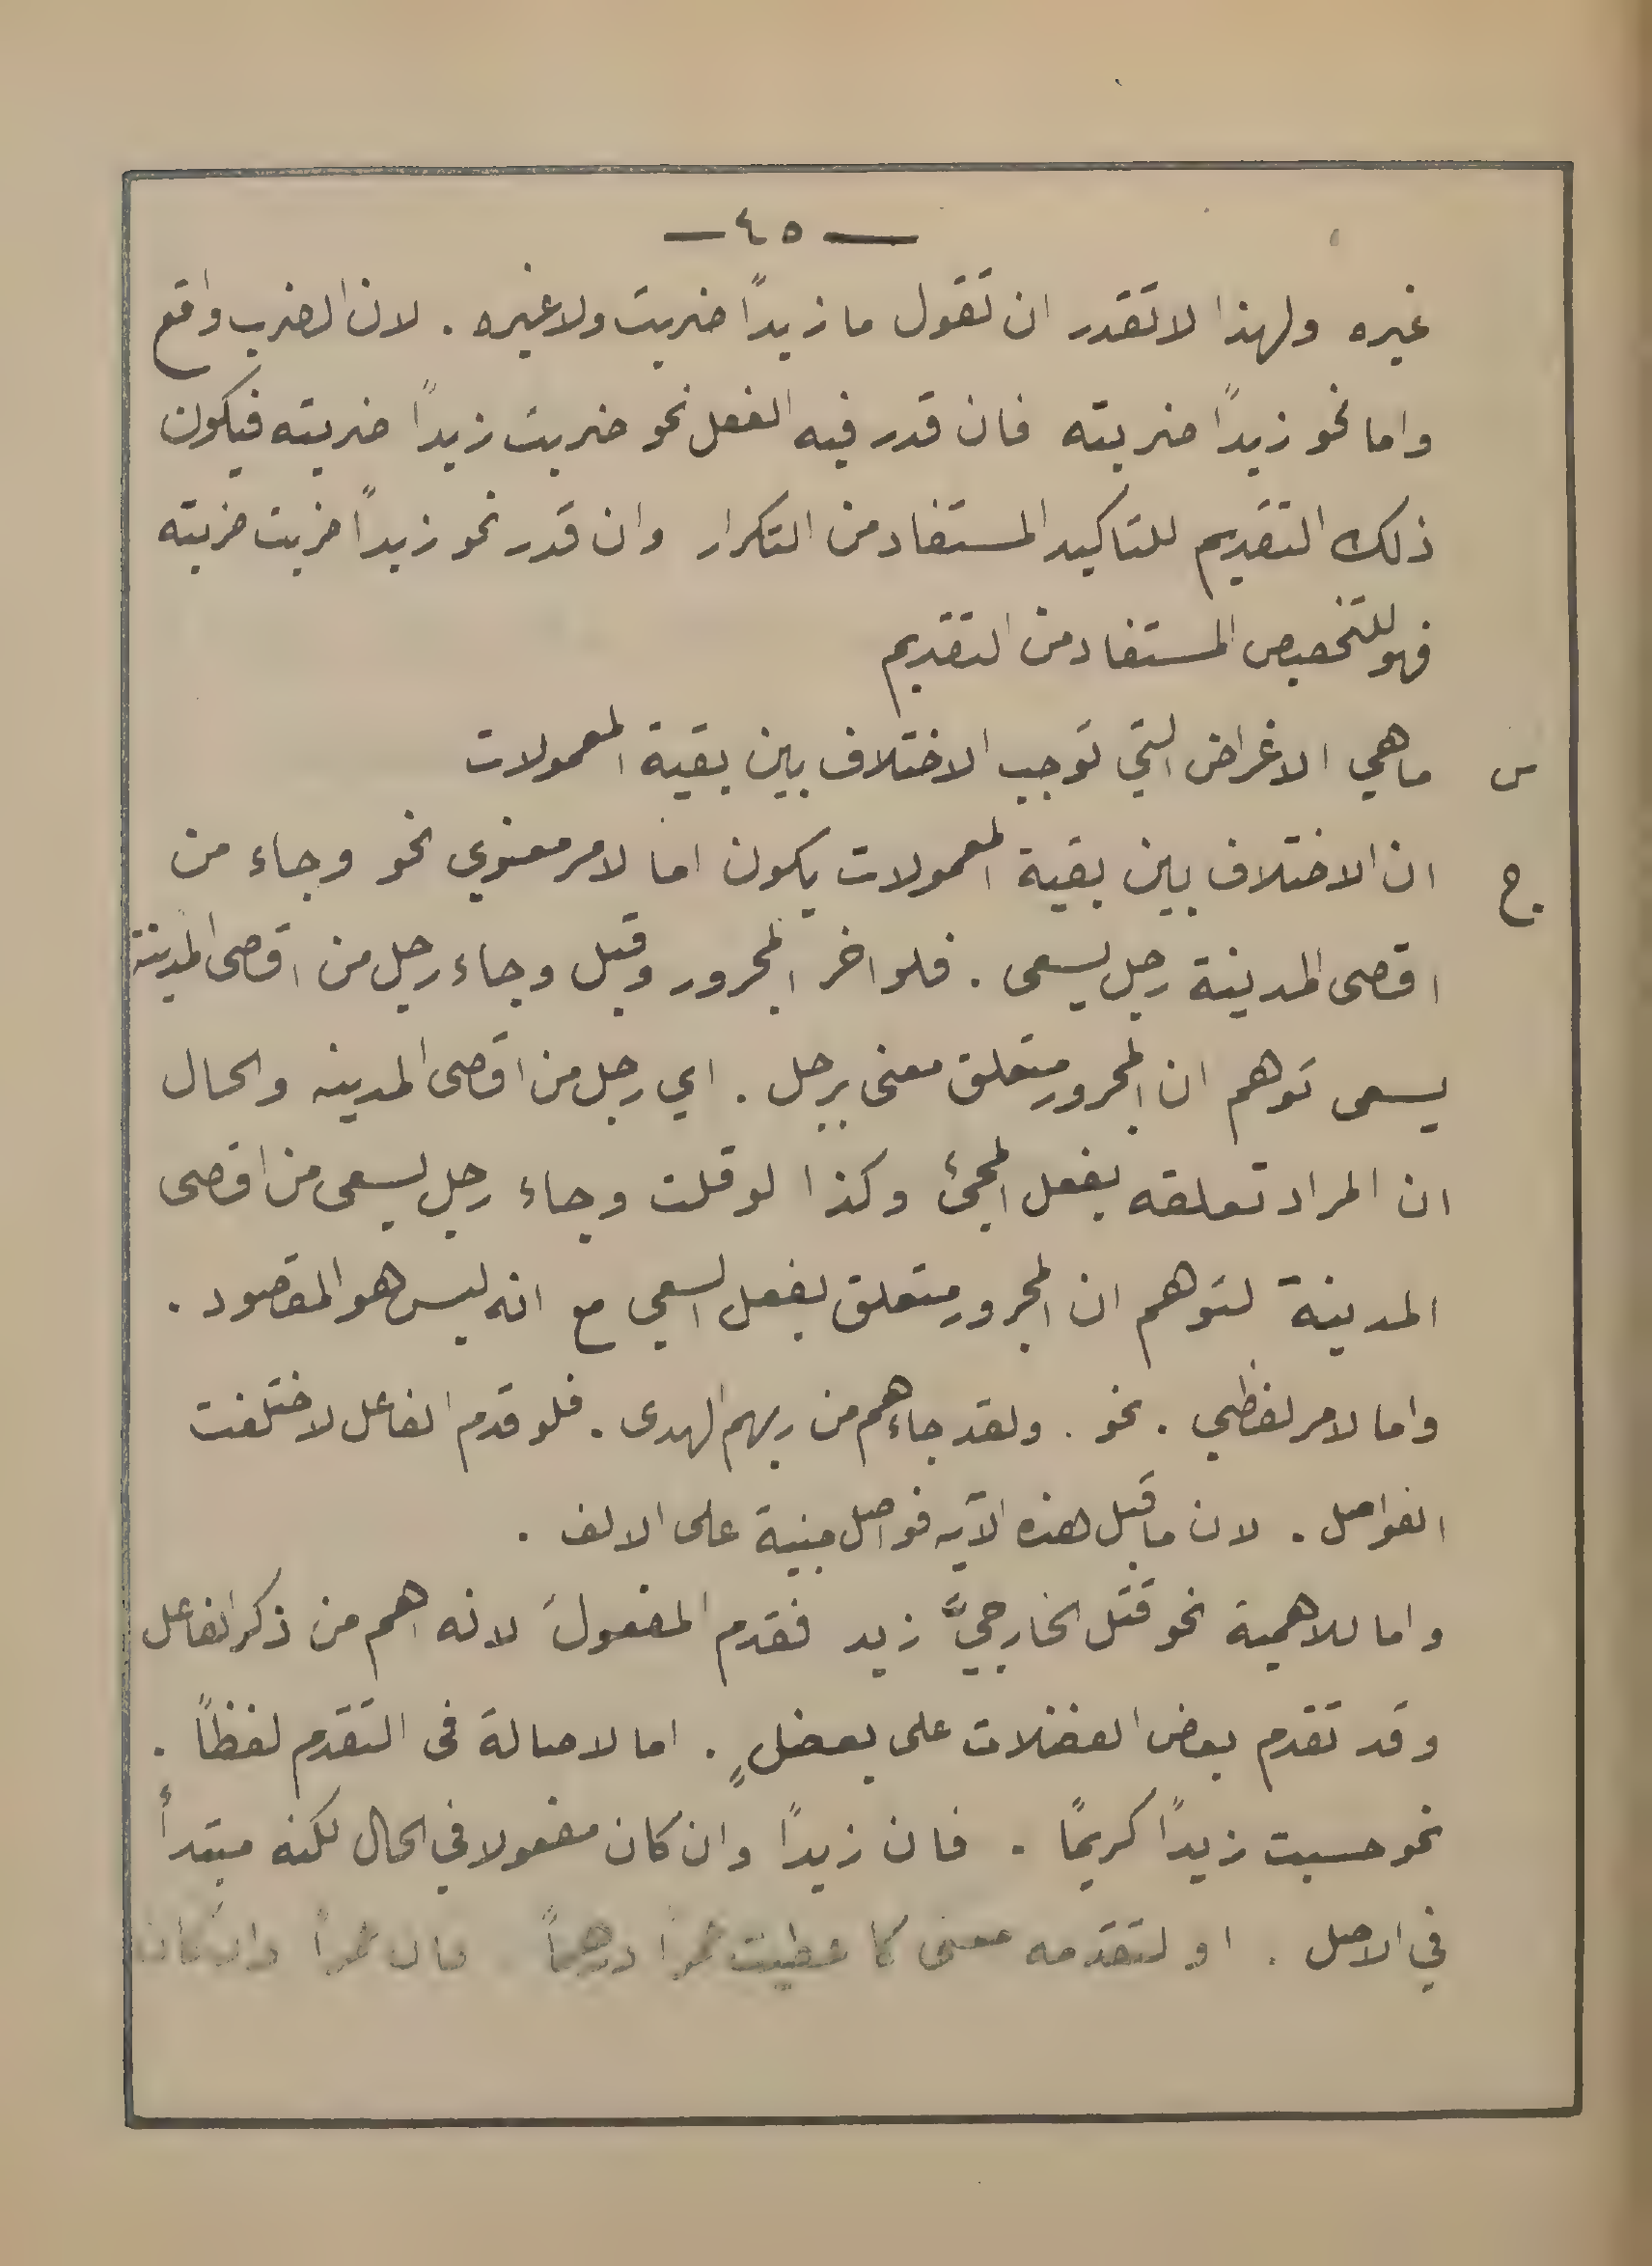 — ٤٥ —
غيره ولهذا لا تقدر ان تقول ما زيداً ضربت ولا غيره . لان الضرب واقع
واما نحو زيداً ضربته فان قدر فيه الفعل نحو ضربت زيداً ضربته فيكون
ذلك التقديم للتاكيد المستفاد من التكرار وان قدر نحو زيداً ضربت ضربته
فهو للتخصيص المستفاد من التقديم
س ما هي الاغراض التي توجب الاختلاف بين بقية المعمولات
ج ان الاختلاف بين بقية المعمولات يكون اما لامر معنوي نحو وجاء من
اقصى المدينة رجل يسعى . فلو اخر المجرور وقيل وجاء رجل من اقصى المدينة
يسعى توهم ان المجرور متعلق معنى برجل . اي رجل من اقصى المدينه والحال
ان المراد تعلقه بفعل المجئ وكذا لو قلت وجاء رجل يسعى من اقصى
المدينة لتوهم ان المجرور متعلق بفعل السعي مع انه ليس هو المقصود .
واما لامر لفظي . نحو . ولقد جاءهم من ربهم الهدى . فلو قدم الفاعل لاختلفت
الفواصل . لان ما قبل هذه الآيه فواصل مبنية على الالف .
واما للاهمية نحو قتل الخارجيَّ زيد فقدم المفعولَ لانه اهم من ذكر الفاعل
وقد تقدم بعض الفضلات على بعضٍ . اما لاصالة فى التقدم لفظاً .
نحو حسبت زيداً كريمًا . فان زيدًا وان كان مفعولا في الحال لكنه مبتدأ
في الاصل . او لتقدمه معنى كاعطيت عمراً درهماً . فان عمراً وان كان